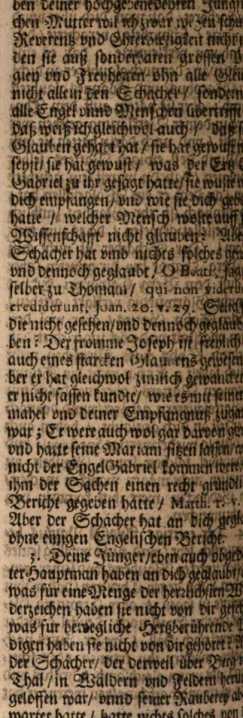 den deiner hochgebenedeyten Jungfr
chen Mutter wil ich zwar wegen schu
Reverentz vnd Ehrerbietigkeit nicht r
den sie auß sonderbaren grossen P
gien vnd Freyheiten ohn alle Gle
nicht allein den Schächer / sondern
alle Engel vnnd Menschen übertrifft
daß weiß ich gleichwol auch / daß s
Glauben gehabt hat / sie hat gewust
seyst / sie hat gewust / was der Ertz
Gabriel zu ihr gesagt hatte / sie wuste
dich empfangen / vnd wie sie dich geb
hatte / welcher Mensch wolte auff
Wissenschafft nicht glauben? Abe
Schächer hat vmb nichts solches ge
vnd dennoch geglaubt / O Beati, sag
selber zu Thomam / qui non viderũ
crediderunt, Joan. 20. v. 29. Seelig
die nicht gesehen / vnd dennoch geglau
ben? Der fromme Joseph ist freylich
auch eines starcken Glaubens gewesen
ber er hat gleichwol zimlich gewancket
er nicht fassen kundte / wie es mit seiner
mahel vnd deiner Empfängnuß zuga
war; Er were auch wol gar darvon ge
vnd hätte seine Mariam sitzen lassen / w
nicht der Engel Gabriel kommen were
ihm der Sachen einen recht gründli
Bericht gegeben hätte / Matth. 1. v.
Aber der Schächer hat an dich gegl
ohne einigen Englischen Bericht.
3. Deine Jünger / eben auch obged
ter Hauptman haben an dich geglaubt
was für eine Menge der herrlichsten W
derzeichen haben sie nicht von dir gese
was für bewegliche Hertzberührende P
digen haben sie nicht von dir gehöret?
der Schächer / der derweil über Berg
Thal / in Wäldern vnd Feldern heru
geloffen war / vnnd seiner Rauberey ab
wartet hatte / hatte nichts solches von